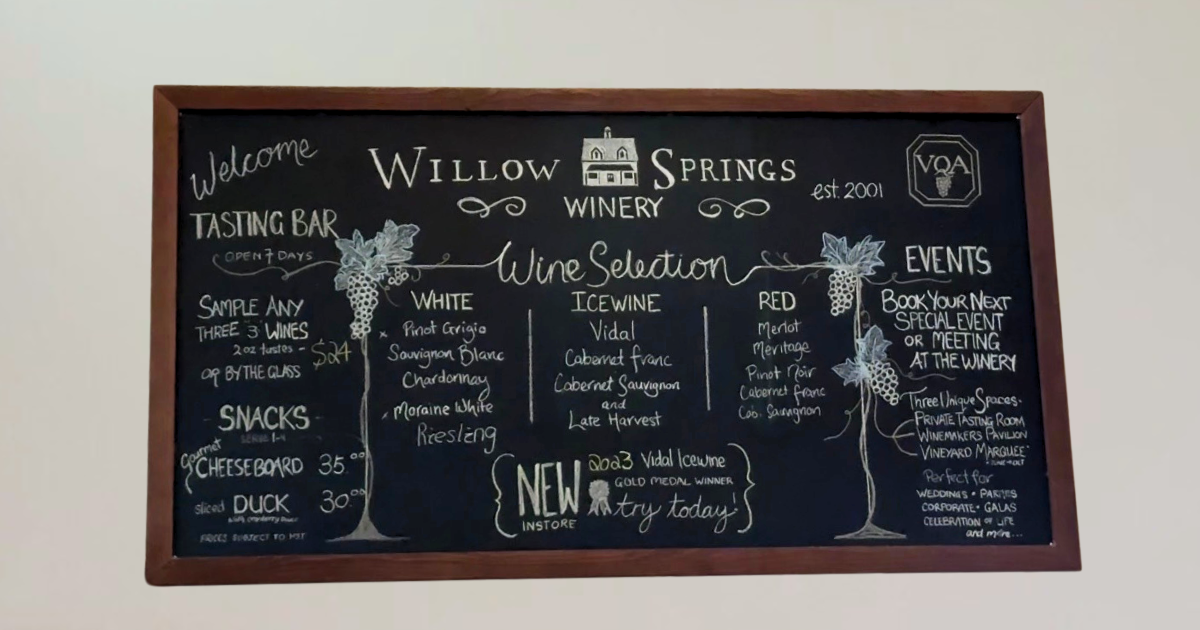 Welcome
WILLOW SPRINGS
WINERY
est. 2001
VQA
TASTING BAR
OPEN 7 DAYS
SAMPLE ANY
THREE 3 WINES
2oz tastes - $24
or BY THE GLASS
SNACKS
Gourmet
CHEESEBOARD 35.00
sliced DUCK 30.00
with cranberry sauce
PRICES SUBJECT TO HST
Wine Selection
WHITE
Pinot Grigio
Sauvignon Blanc
Chardonnay
Moraine White
Riesling
ICEWINE
Vidal
Cabernet franc
Cabernet Sauvignon
and
Late Harvest
RED
Merlot
Meritage
Pinot Noir
Cabernet franc
Cab. Sauvignon
NEW
INSTORE
2023 Vidal Icewine
GOLD MEDAL WINNER
try today!
EVENTS
BOOK YOUR NEXT
SPECIAL EVENT
OR MEETING
AT THE WINERY
Three Unique Spaces-
PRIVATE TASTING ROOM
WINEMAKERS PAVILION
VINEYARD MARQUEE
Perfect for
WEDDINGS • PARTIES
CORPORATE • GALAS
CELEBRATION OF LIFE
and more...